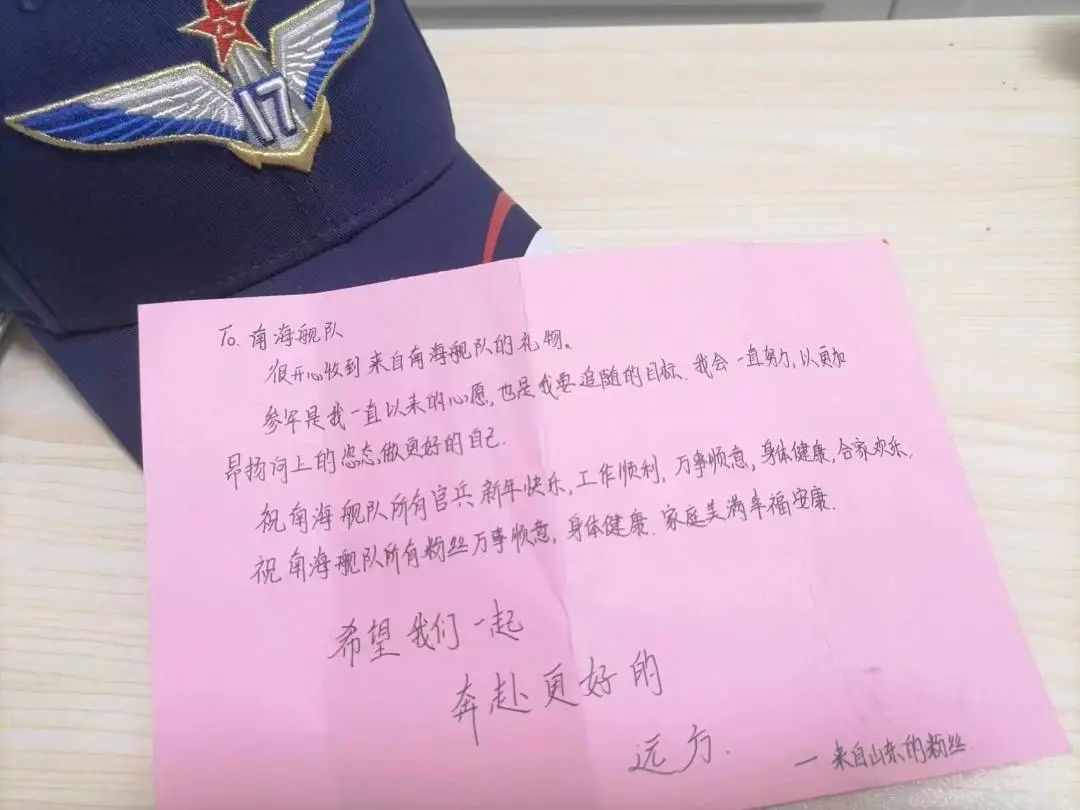 17
To. 南海舰队
很开心收到来自南海舰队的礼物。
参军是我一直以来的心愿,也是我要追随的目标.我会一直努力,以更加
昂扬向上的姿态,做更好的自己.
祝南海舰队所有官兵新年快乐,工作顺利,万事顺意,身体健康,合家欢乐.
祝南海舰队所有粉丝万事顺意,身体健康.家庭美满幸福安康.
希望我们一起
奔赴更好的
远方.
—来自山东的粉丝